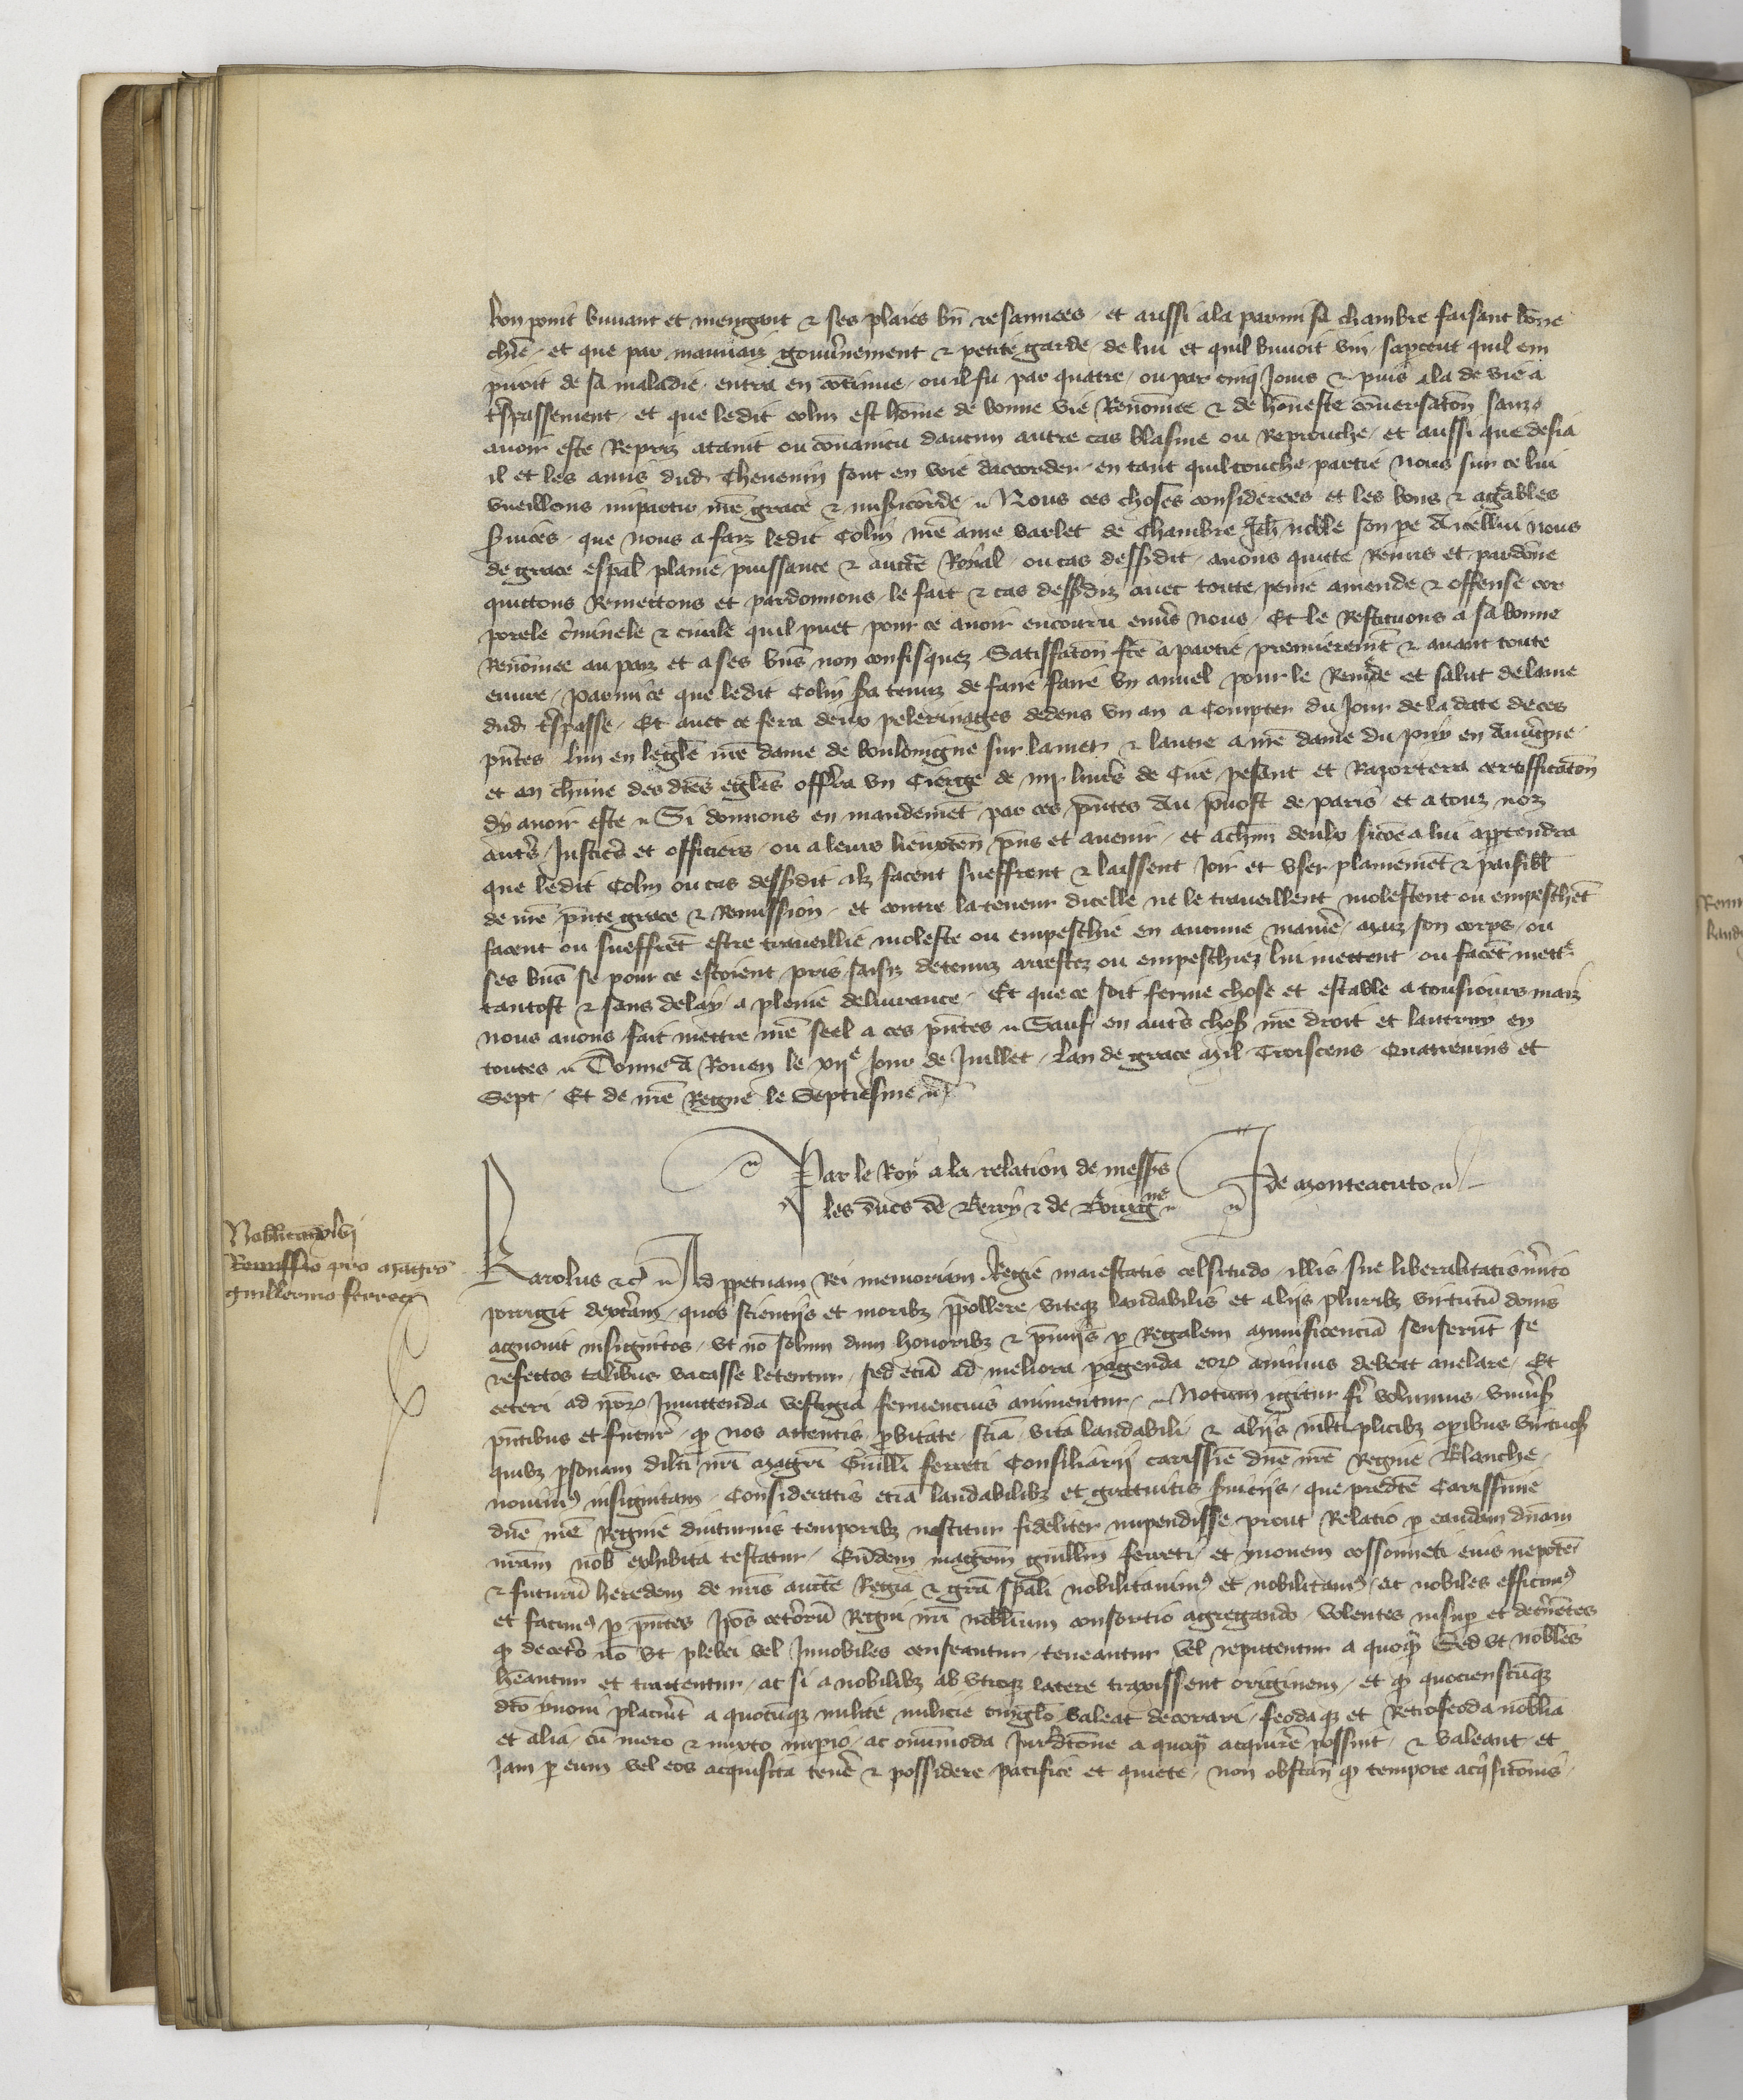 bon point buvant et mengant & ses plaies bn resannees / et aussi ala parmi sa chambre faisant bone
chie / et que par mauvaiz gouvnement & petite garde / de lui et quil buvoit vin / sapceut quil em
piroit de sa maladie / entra en cotinue / ou il fu par quatre / ou par cinq jours & puis ala de vie a
trespassement / et que ledit colin est home de bonne vie renomee & de honeste conversaton sanz
avoir este repriz ataint ou convaincu daucun autre cas blasme ou reprouche / et aussi que desia
il et les amis dud thevenin sont en voie daccorder / en tant quil touche partie nous sur ce lui
vueillons impartir nre grace & misicorde / Nous ces choses considerees et les bons & agables
svices / que nous a faiz ledit Colin nre ame varlet de chambre Jeh noble son pe A icellui nous
de grace espal plaine puissance & aucte Royal / ou cas dessusdit / avons quitte remis et pardone
quittons remettons et pardonnons / le fait & cas dessusdiz avec toute peine amende & offense cor
porele criminele & civile quil puet pour ce avoir encouru envs nous / Et le restituons a sa bonne
renomee au paiz et a ses bns non confisquez / Satisfaton fce a partie premieremt & avant toute
euvre / parmi ce que ledit Colin sa tenuz de faire faire un annuel pour le remede et salut de lame
dud trespasse / Et avec ce fera deux pelerinages dedens un an a compter du jour de la date de ces
pntes lun en legle nre dame de boulongne sur la mer & lautre a nre dame du puy en Auvgne
et en chune des dtes egles offrera un cierge de iiij livres de cire pesant et raportera certifficaton
dy avoir este / Si donnons en mandemet par ces pntes Au pvost de paris et a touz noz
autrs justicrs et officiers / ou a leurs lieuxten pns et avenir / et a chun deulx sicoe a lui apptendra
que ledit Colin ou cas dessusdit ilz facent sueffrent & laissent joir et user plainemet & paisibl
de nre pnte grace & remission / et contre la teneur dicelle ne le traveillent molestent ou empeschet
facent ou sueffret estre traveillie moleste ou empeschie en aucune manie / maiz son corps / ou
ses bns se pour ce estoient pris saisiz detenuz arrestez ou empeschiez lui mettent ou facet mettre
tantost & sans delay a pleine delivrance / Et que ce soit ferme chose et estable a tousiours maiz
nous avons fait mettre nre seel a ces pntes / Sauf en autrs chos nre droit et lautruy en
toutes / Donne A Rouen le xije jour de juillet / lan de grace mil Troiscens Quatrevins et
Sept / Et de nre Regne le Septiesme
Par le Roy a la relation de messs
les ducs de Berry & de Bourgne
J de Monteacuto
Nobilitacio
Remissio pro magro
guillermo ferreti
Karolus &c Ad ppetuam Rei memoriam Regie maiestatis celsitudo / illis sue liberalitatis mito
porrigit dextram / quos scienciis et moribz ppollere viteqz laudabilis et aliis pluribz virtutu donis
agnovit insignitos / ut no solum dum honoribz & pmiis p Regalem munificencia senserut se
refectos talibus vacasse letentur / sed ecia ad meliora pagenda eor animus debeat anelare / Et
ceteri ad ipor imittenda vestigia fervencius animentur / Notum igitur fi volumus univs
pntibus et futur / q nos attentis pbitate / scia vita laudabili & aliis multiplicibz opibus virtuos
quibz psonam dilci nri magri Guilli ferreti Consiliarii carissie dne nre Regine Blanche
novim insignitam / Consideratis ecia laudabilibz et gratuitis sviciis / que predce Carissime
dne nre Regine diuturnis temporibz noscitur fideliter impendisse prout relatio p eandam dnam
nram nob exhibita testatur / Eudem magrm guillm ferreti / et yvonem cossonneti eius nepote
& futuru heredem de nris aucte Regia & gra spali nobilitavim et nobilitam / ac nobiles efficim
et facim p pntes ipos cetoru Regni nri nobilium consortio agregando / volentes insup et decnentes
q deceto no ut plebei vel innobiles censeantur / teneantur vel reputentur a quoq Sed ut nobles
heantur et tractentur / ac si a nobilibz ab utroqz latere traxissent originem / et q quocienscuqz
dco yvoni placuit a quocuqz milite milicie cinglo valeat decorari / feodaqz et Retrofeoda noblia
et alia / cu mero & mixto impio / ac omimoda jurdicone a quoq acquire possint / & valeant et
Jam p eum vel eos acquisita tene & possidere pacifice et quiete / non obstan q tempore acqsitonis